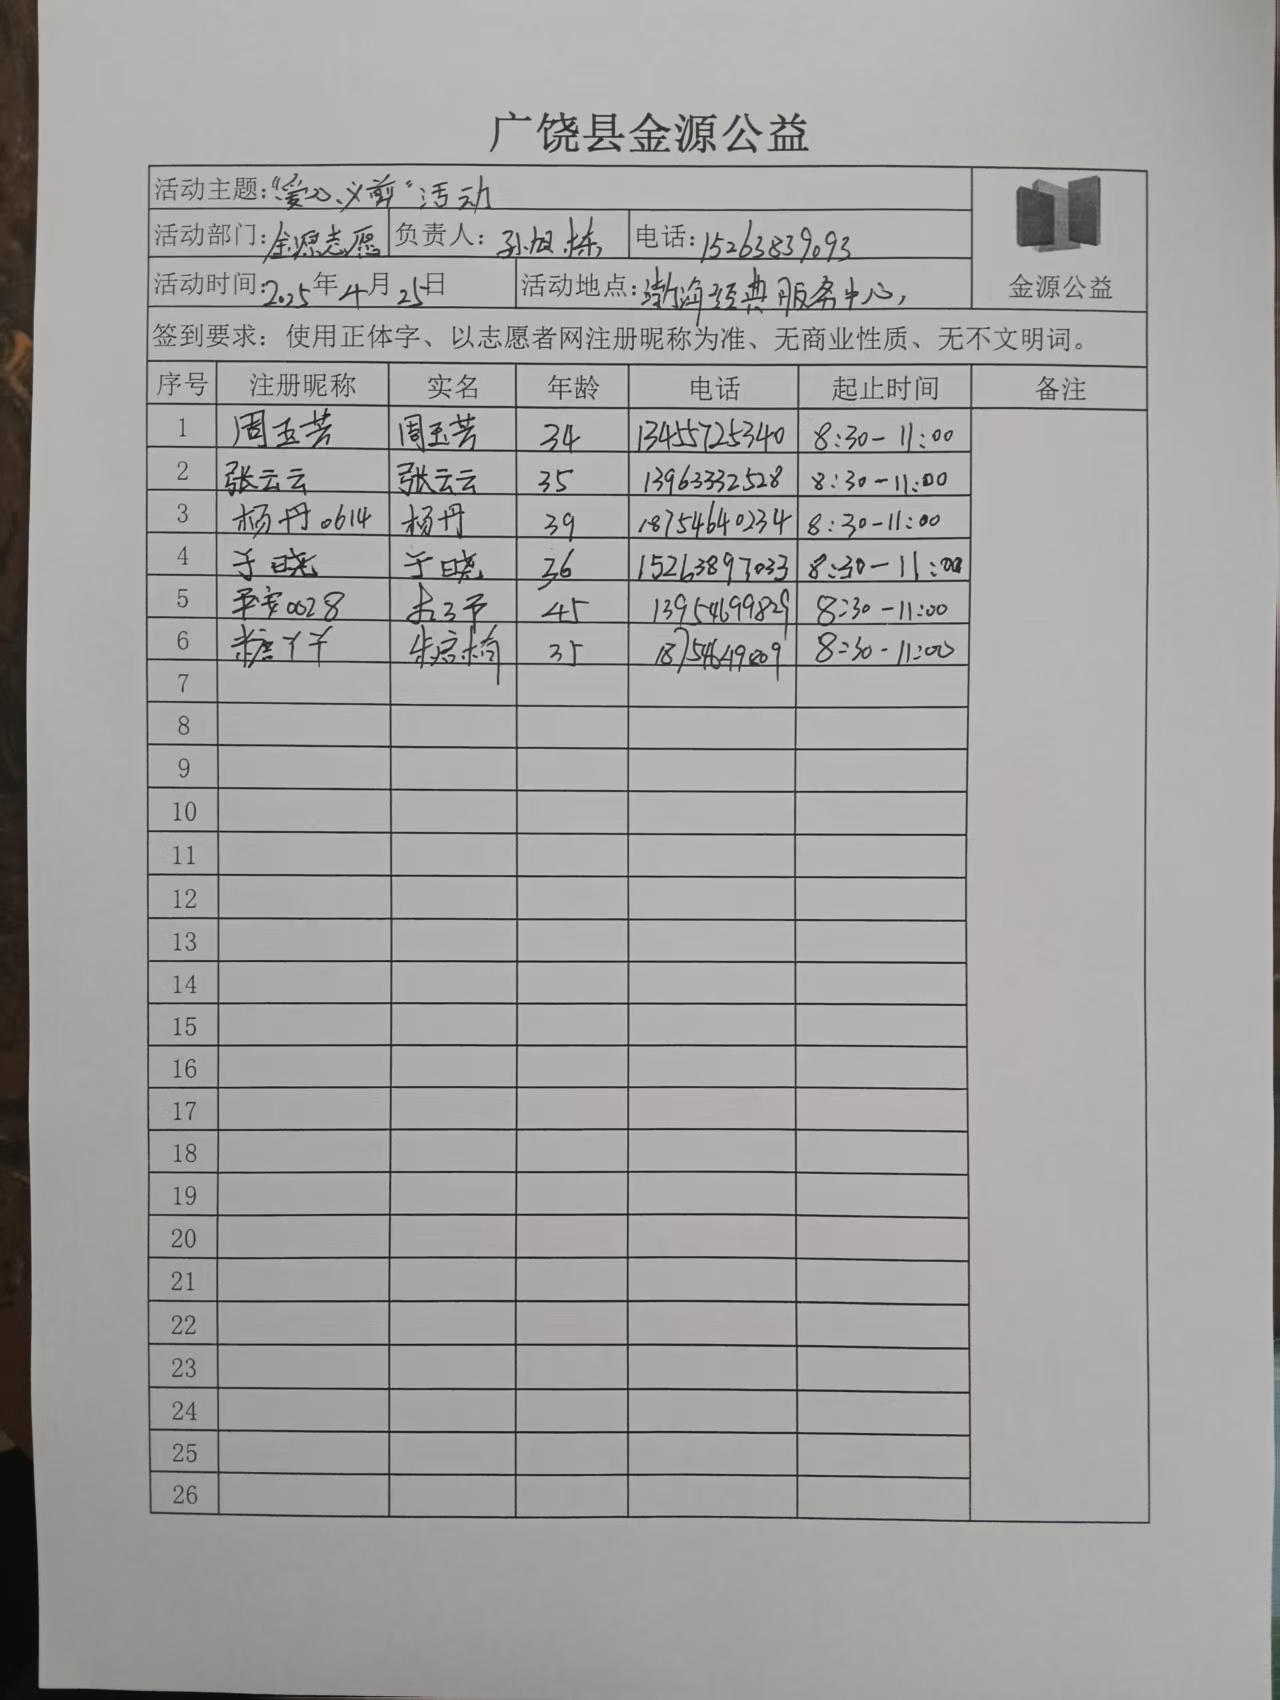 广饶县金源公益
活动主题:“爱心义剪”活动
活动部门:金源志愿 负责人:孙旭栋 电话:15263839093
活动时间:2025年4月25日 活动地点:渤海经典服务中心
金源公益
签到要求：使用正体字、以志愿者网注册昵称为准、无商业性质、无不文明词。
序号 注册昵称 实名 年龄 电话 起止时间 备注
1 周玉芳 周玉芳 34 13455725340 8:30-11:00
2 张云云 张云云 35 13963332528 8:30-11:00
3 杨丹0614 杨丹 39 18754640234 8:30-11:00
4 于晓 于晓 36 15263897033 8:30-11:00
5 平安0028 45 13954699829 8:30-11:00
6 糖丫丫 35 8:30-11:00
7
8
9
10
11
12
13
14
15
16
17
18
19
20
21
22
23
24
25
26